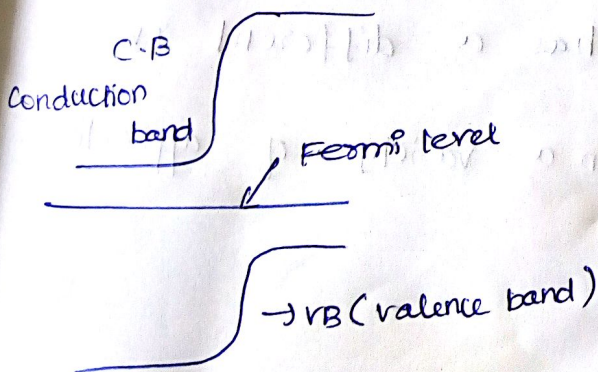 C-B
Conduction
band
Fermi level
→ VB (valence band)